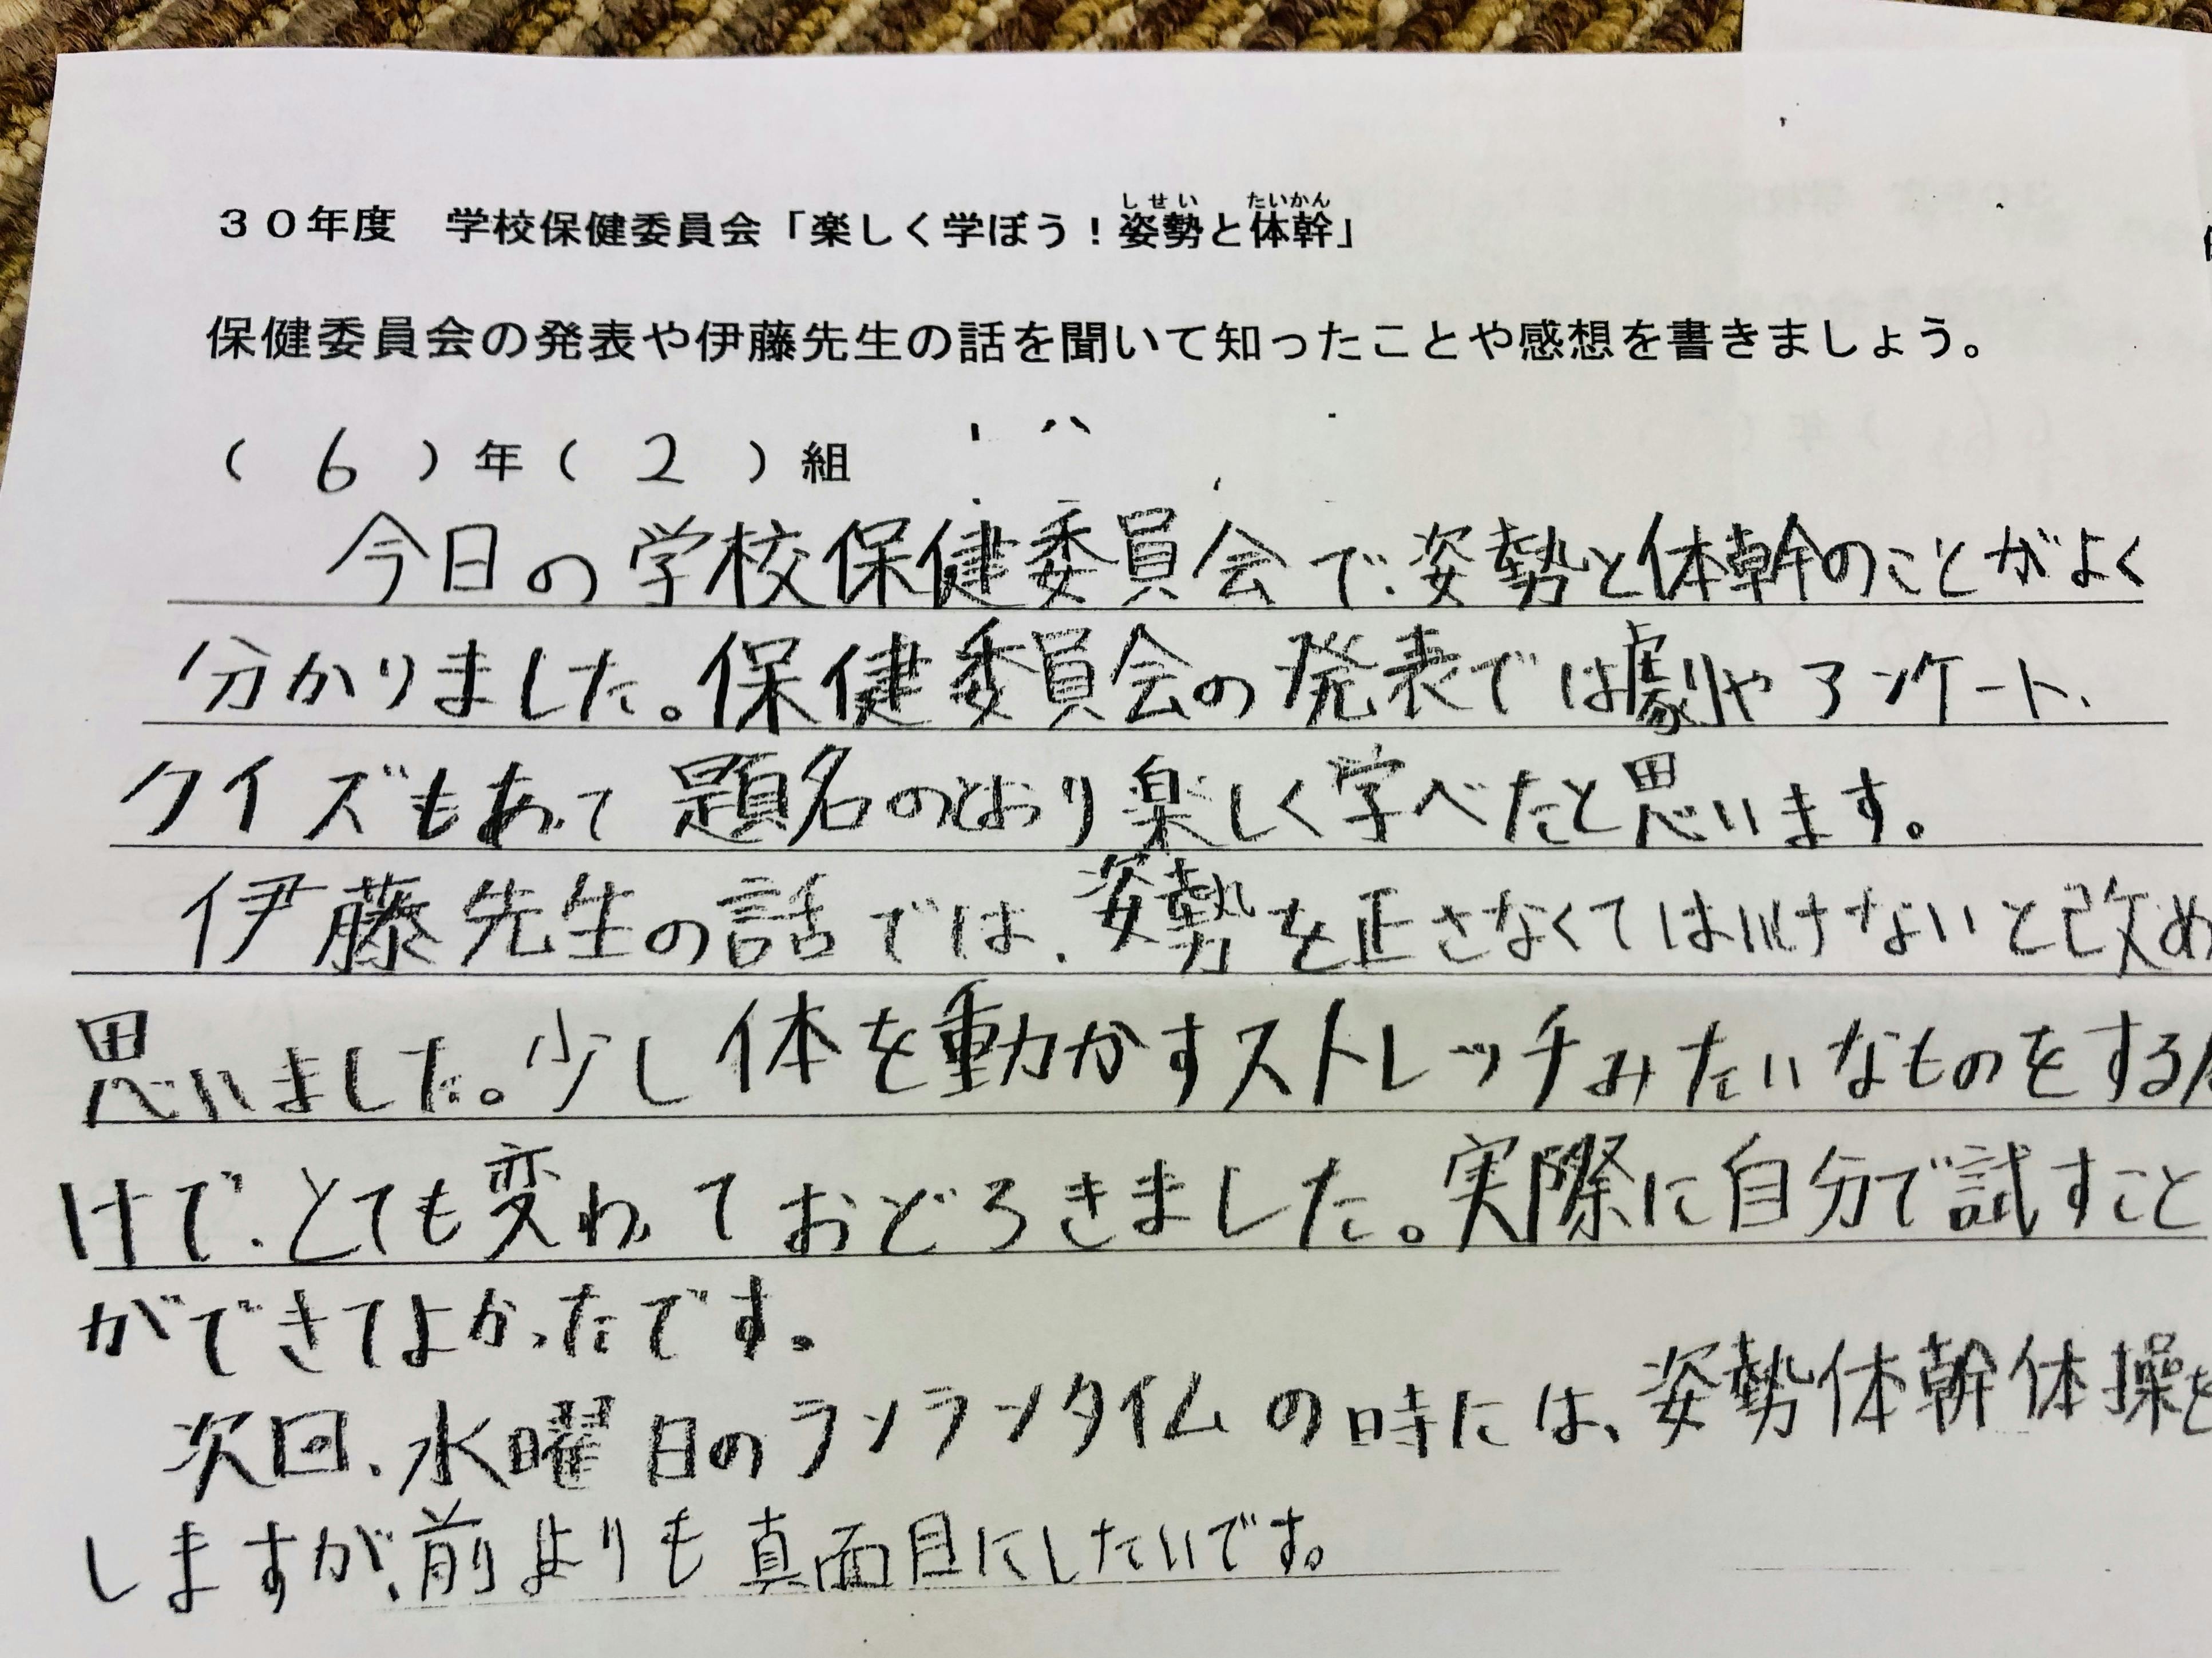 30年度　学校保健委員会「楽しく学ぼう！姿勢と体幹」
しせい　たいかん
保健委員会の発表や伊藤先生の話を聞いて知ったことや感想を書きましょう。
（ 6 ）年（ 2 ）組
今日の学校保健委員会で、姿勢と体幹のことがよく
分かりました。保健委員会の発表では劇やアンケート、
クイズもあって題名のとおり楽しく学べたと思います。
伊藤先生の話では、姿勢を正さなくてはいけないと改め
思いました。少し体を動かすストレッチみたいなものをする
けで、とても変わっておどろきました。実際に自分で試すこと
ができてよかったです。
次回、水曜日のランランタイムの時には、姿勢体幹体操を
しますが、前よりも真面目にしたいです。